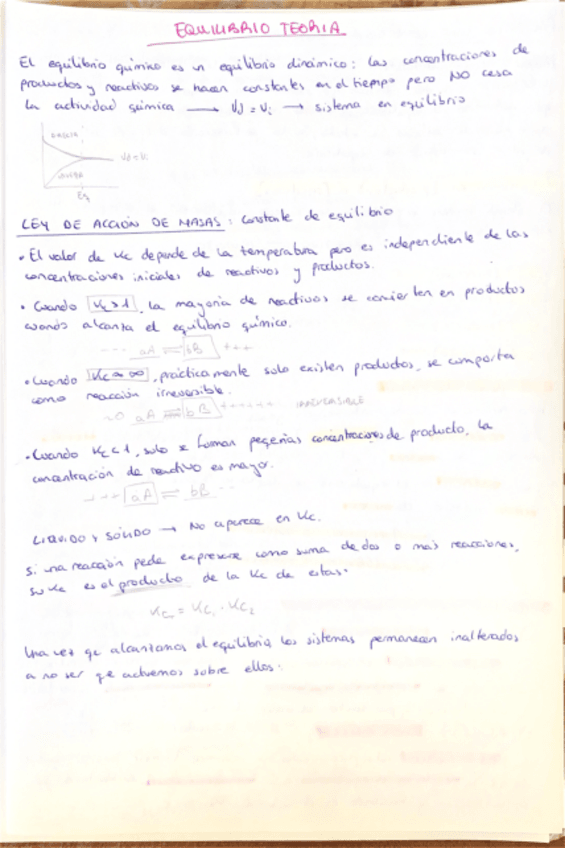 EQUILIBRIO TEORIA
El equilibrio químico es un equilibrio dinámico: las concentraciones de
productos y reactivos se hacen constantes en el tiempo pero NO cesa
la actividad química → Vd = Vi → sistema en equilibrio
directa
Vd = Vi
inversa
Eq
LEY DE ACCIÓN DE MASAS: constante de equilibrio
• El valor de Kc depende de la temperatura pero es independiente de las
concentraciones iniciales de reactivos y productos.
• Cuando Kc>1, la mayoría de reactivos se convierten en productos
cuando alcanza el equilibrio químico.
--- aA ⇌ bB +++
• Cuando Kc≈∞, prácticamente solo existen productos, se comporta
como reacción irreversible.
~0 aA ⇌ bB ++++++ IRREVERSIBLE
• Cuando Kc<1, solo se forman pequeñas concentraciones de producto, la
concentración de reactivo es mayor.
+++ aA ⇌ bB --
LIQUIDO Y SÓLIDO → No aparece en Kc.
Si una reacción pede expresarse como suma de dos o más reacciones,
su Kc es el producto de la Kc de estas.
KcT = KC1 · KC2
Una vez qe alcanzamos el equilibrio, los sistemas permanecen inalterados
a no ser qe actuemos sobre ellos.